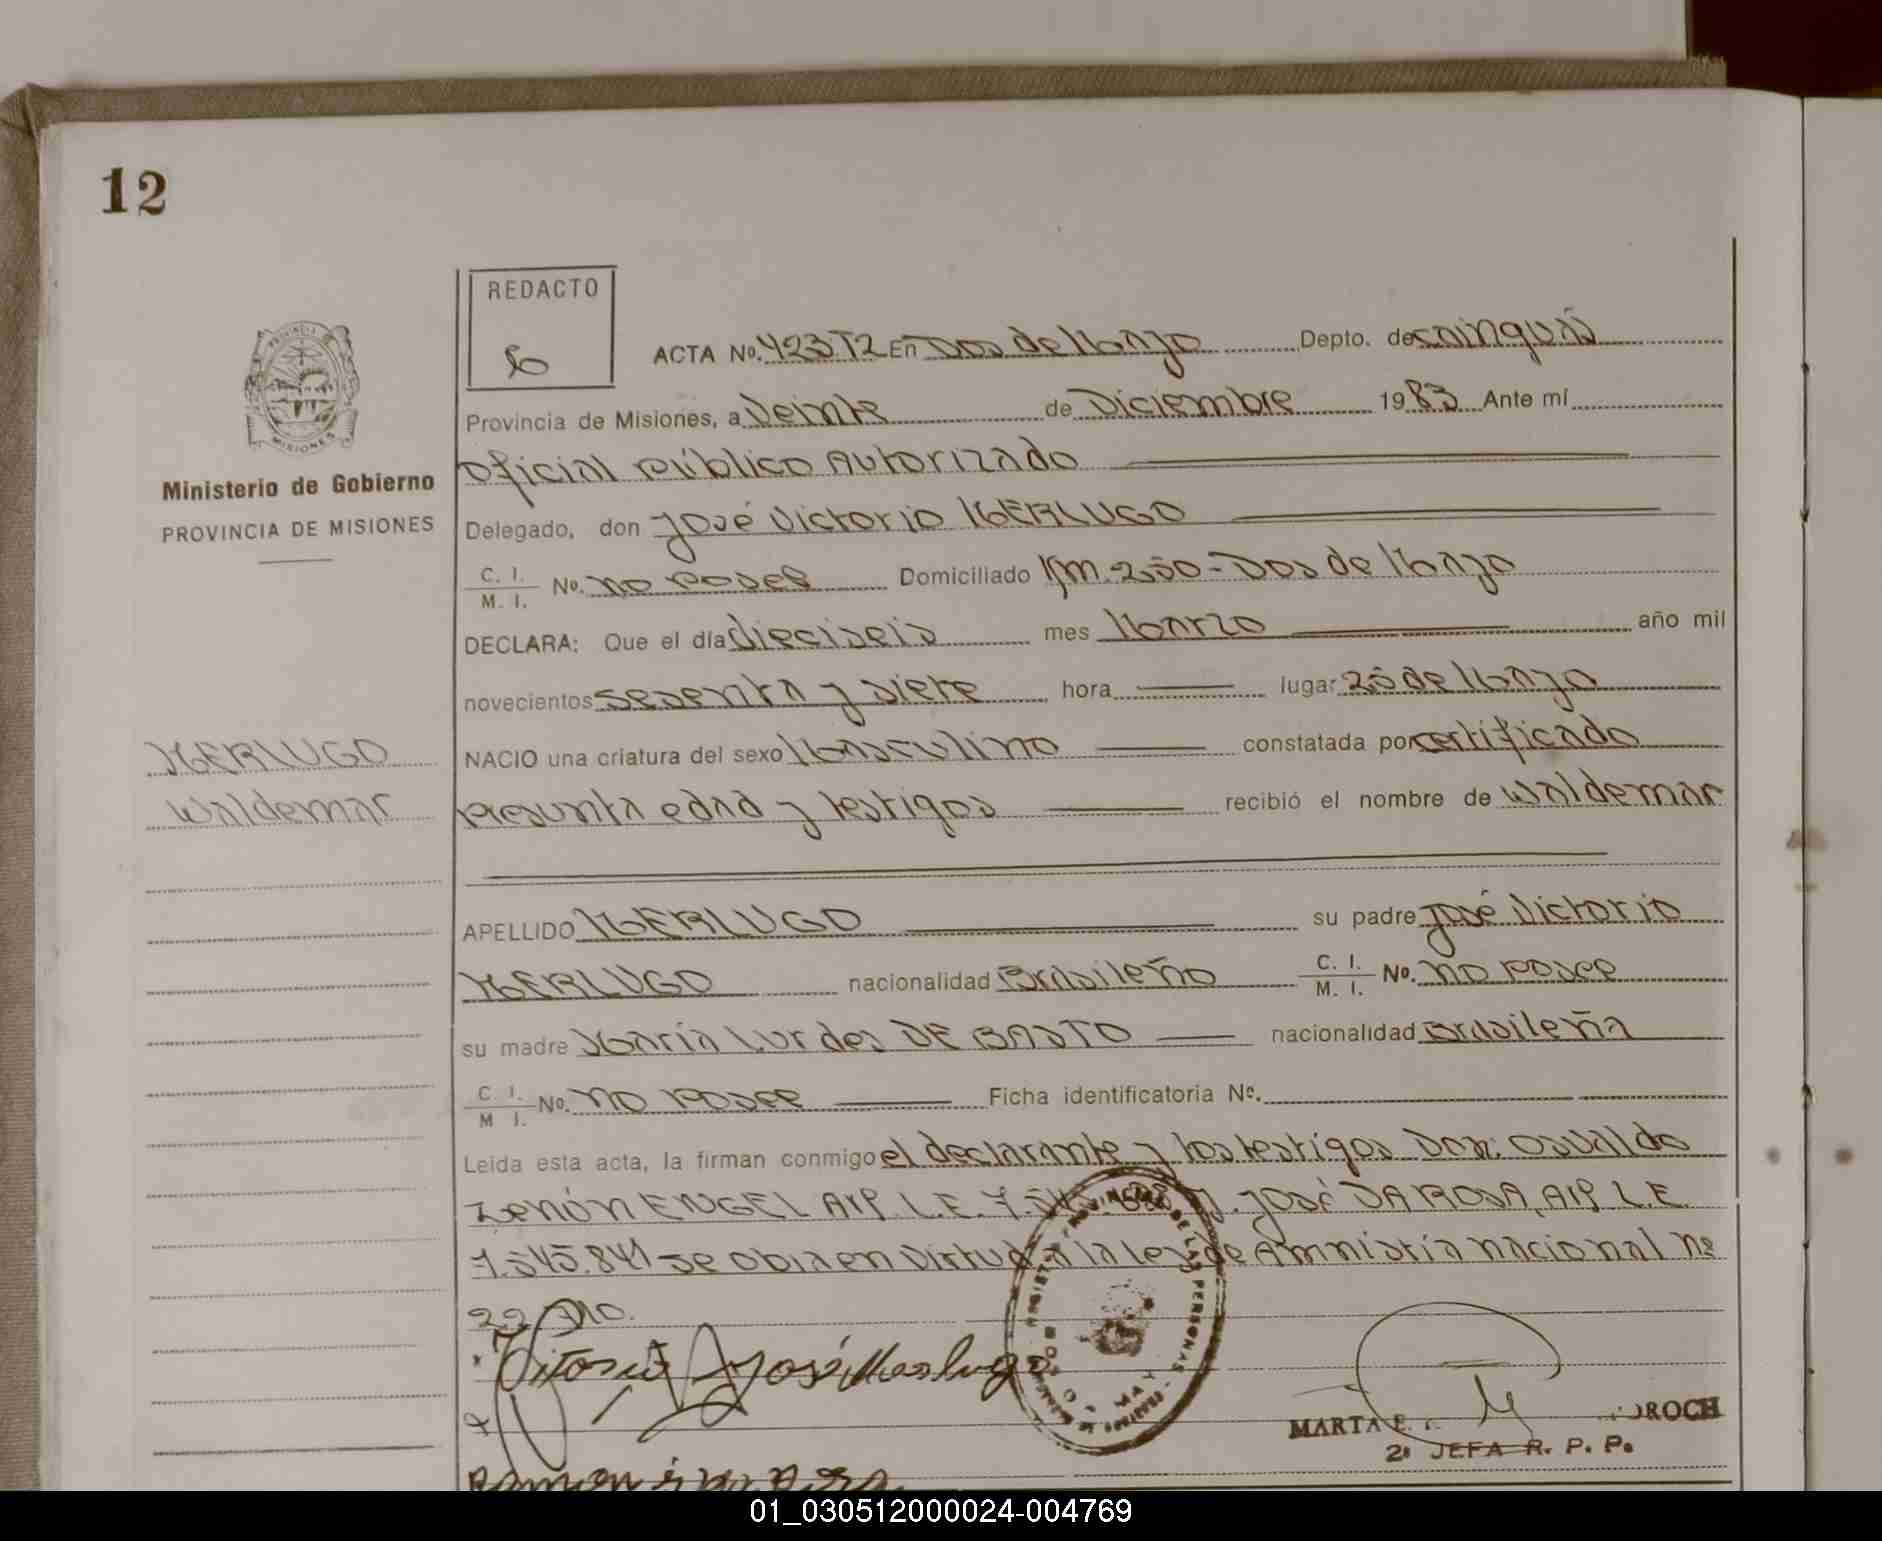 12
REDACTO
ACTA No. 423 T2 En Dos de Mayo Depto. de Cainguás
Provincia de Misiones, a Veinte de Diciembre 1983 Ante mí
Oficial Público Autorizado
Delegado, don José Victorio MERLUGO
C. I. M. I. No. no posee Domiciliado Km. 250 - Dos de Mayo
DECLARA: Que el día dieciseis mes Marzo año mil
novecientos sesenta y siete hora lugar 25 de Mayo
NACIO una criatura del sexo Masculino constatada por certificado
presunta edad y testigos recibió el nombre de Waldemar
APELLIDO MERLUGO su padre José Victorio
MERLUGO nacionalidad Brasileño C. I. M. I. No. no posee
su madre María Lurdes DE BASTO nacionalidad Brasileña
C. I. M. I. No. no posee Ficha identificatoria No.
Leida esta acta, la firman conmigo el declarante y los testigos Don: Osvaldo
Zenón ENGEL Arg. L.E. 7. y José DA ROSA, Arg. L.E.
7.545.841 se obra en virtud a la ley de Amnistía nacional No
22
Vitorio José Merlugo
MARTA E. ROCH
2a JEFA R. P. P.
PROVINCIA DE MISIONES
Ministerio de Gobierno
PROVINCIA DE MISIONES
MERLUGO
Waldemar
REGISTRO PROVINCIAL DE LAS PERSONAS
01_030512000024-004769